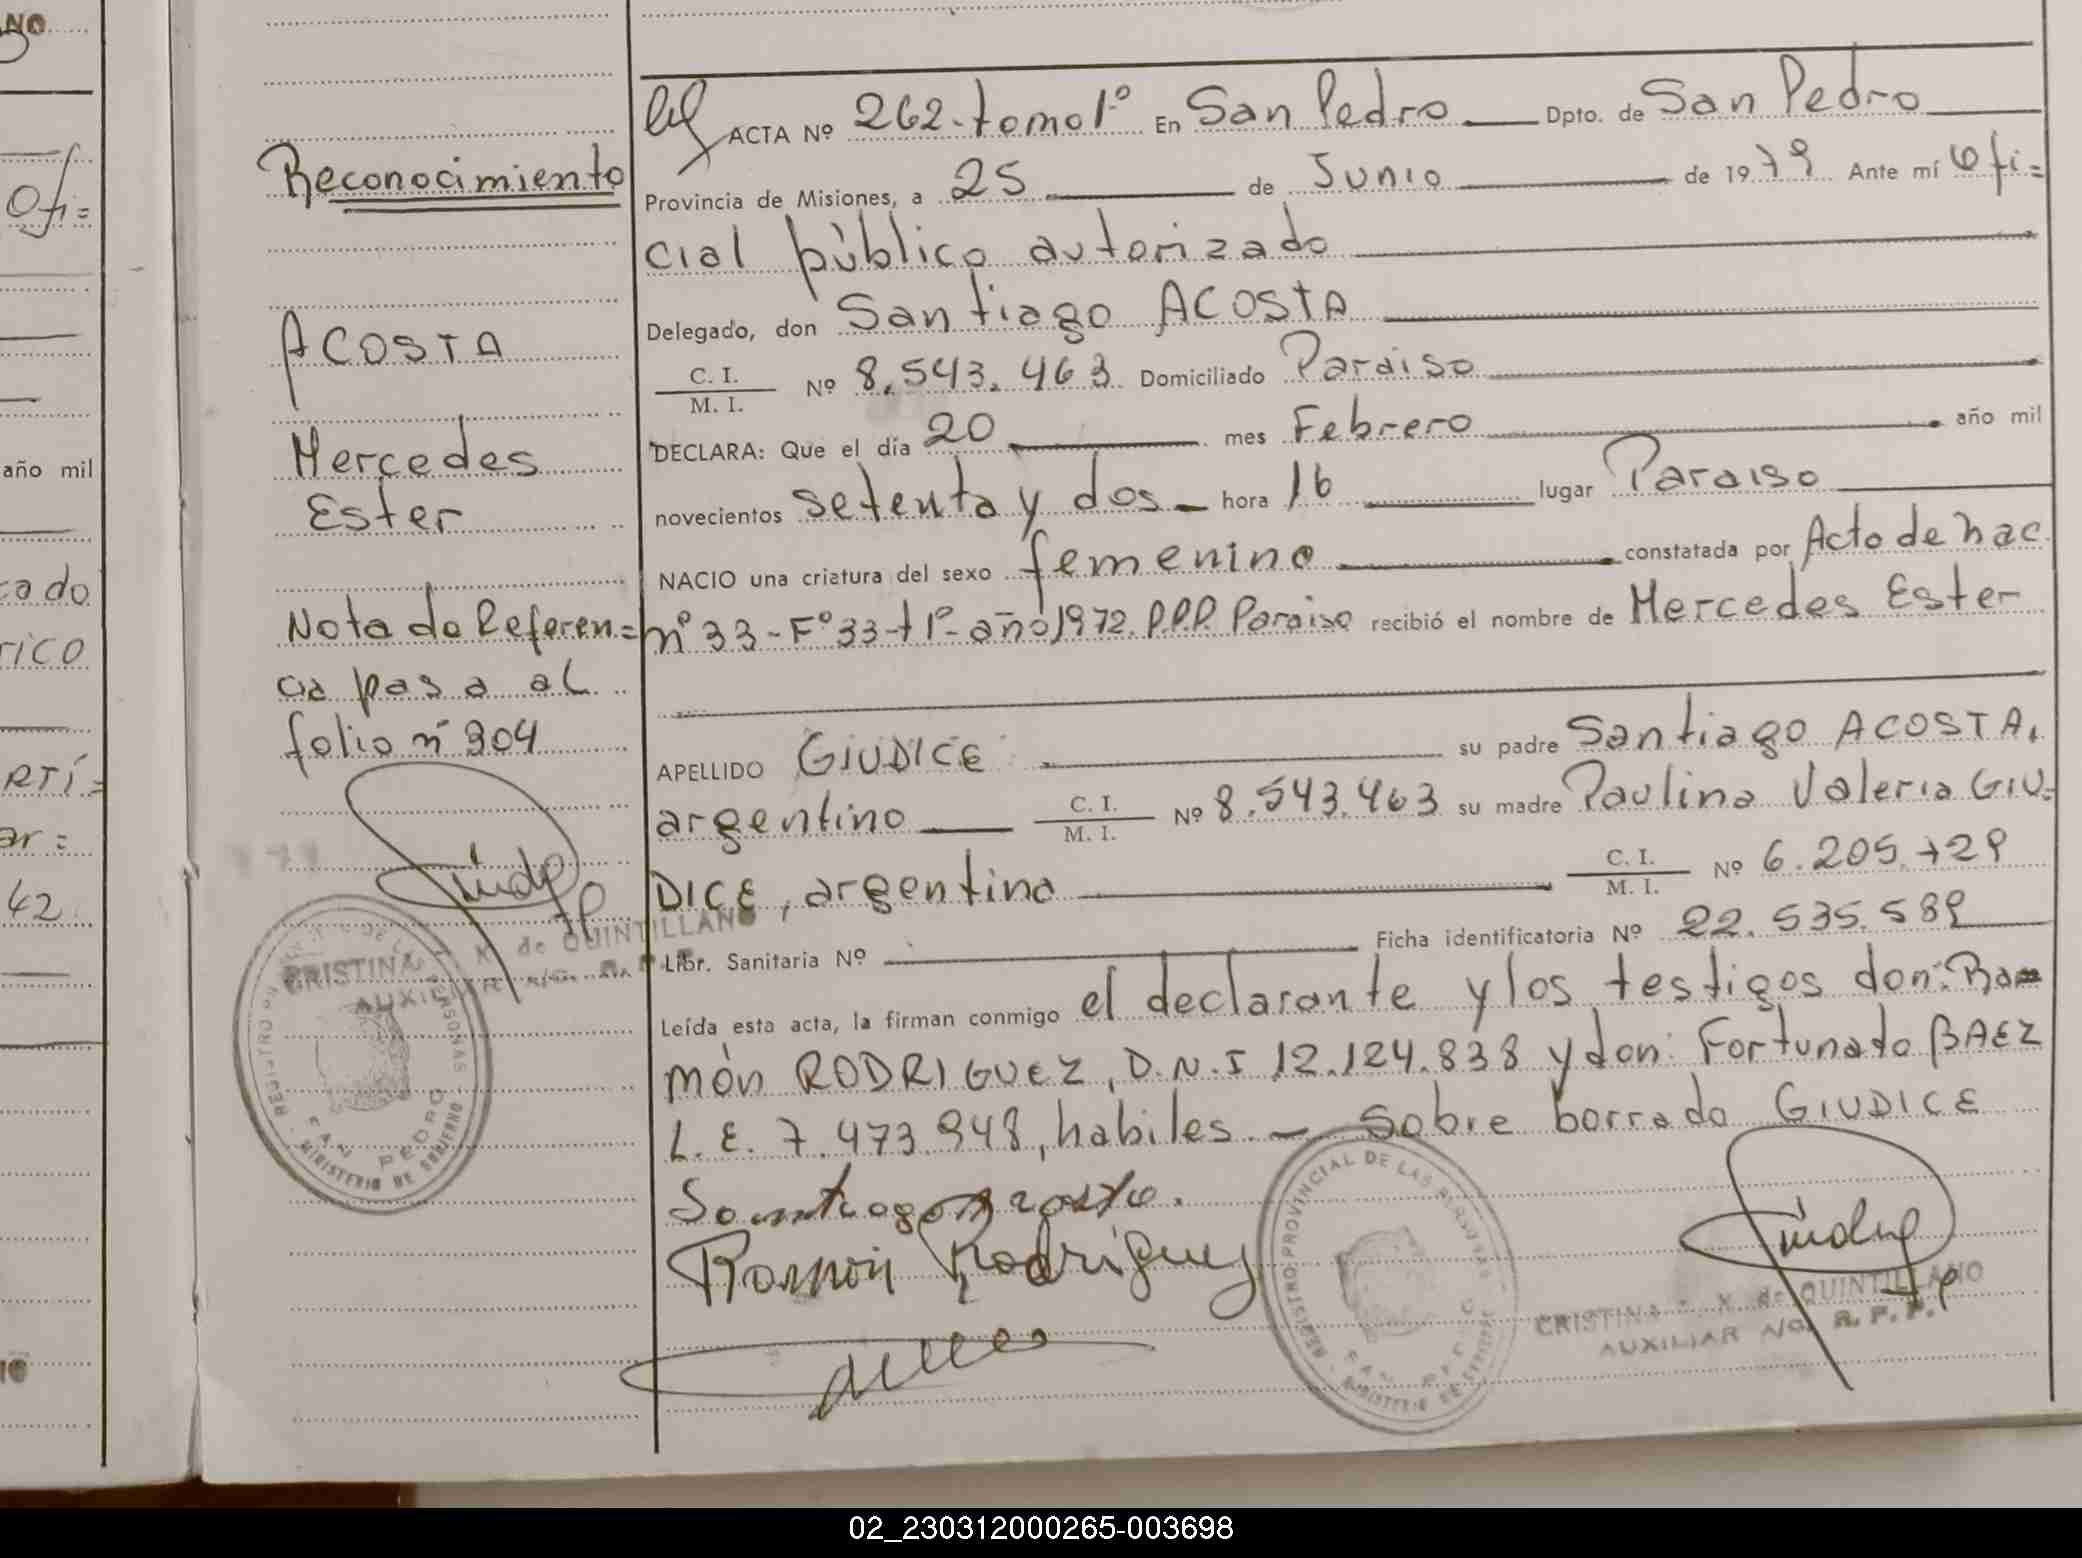 Reconocimiento
ACOSTA
Mercedes
Ester
Nota de Referen=
cia pasa al
folio nº 304
CRISTINA K de QUINTILLANO
AUXILIAR A/C. R.P.P.
MINISTERIO DE GOBIERNO
SAN PEDRO
ACTA Nº 262-tomo 1º En San Pedro Dpto. de San Pedro
Provincia de Misiones, a 25 de Junio de 1979 Ante mí Ofi=
cial público autorizado
Delegado, don Santiago ACOSTA
C. I.
M. I. Nº 8.543.463 Domiciliado Paraiso
DECLARA: Que el día 20 mes Febrero año mil
novecientos setenta y dos hora 16 lugar Paraiso
NACIO una criatura del sexo femenino constatada por Acto de nac.
nº 33-Fº 33-t 1º-año 1972. P.P.P. Paraiso recibió el nombre de Mercedes Ester
APELLIDO GIUDICE su padre Santiago ACOSTA,
argentino C. I.
M. I. Nº 8.543.463 su madre Paulina Valeria GIU=
DICE, argentina C. I.
M. I. Nº 6.205.729
Libr. Sanitaria Nº Ficha identificatoria Nº 22.535.589
Leída esta acta, la firman conmigo el declarante y los testigos don: Ra=
món RODRIGUEZ, D.N.I 12.124.838 y don: Fortunato BAEZ
L.E. 7.473.948, habiles.- Sobre borrado GIUDICE
Santiago Acosta.
Ramón Rodriguez
REGISTRO PROVINCIAL DE LAS PERSONAS
SAN PEDRO
MINISTERIO DE GOBIERNO
CRISTINA K de QUINTILLANO
AUXILIAR A/C. R.P.P.
Ofi=
año mil
RTÍ=
ar=
42
02_230312000265-003698